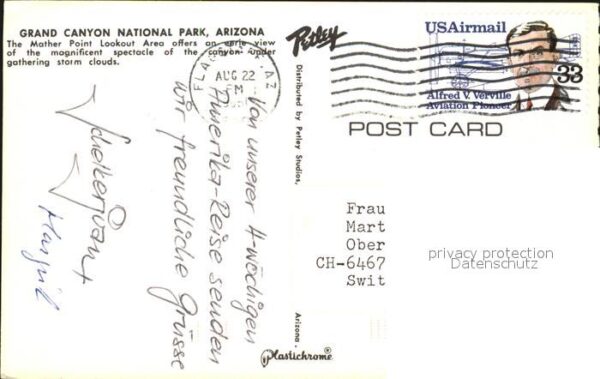 GRAND CANYON NATIONAL PARK, ARIZONA
The Mather Point Lookout Area offers an eerie view
of the magnificent spectacle of the canyon under
gathering storm clouds.
Petley
USAirmail
33
Alfred V. Verville
Aviation Pioneer
AUG 22
PM
AZ
POST CARD
Distributed by Petley Studios,
Arizona.
Plastichrome®
Von unserer 4-wöchigen
Amerika-Reise senden
wir freundliche Grüsse
Margrit
Frau
Mart
Ober
CH-6467
Swit
privacy protection
Datenschutz